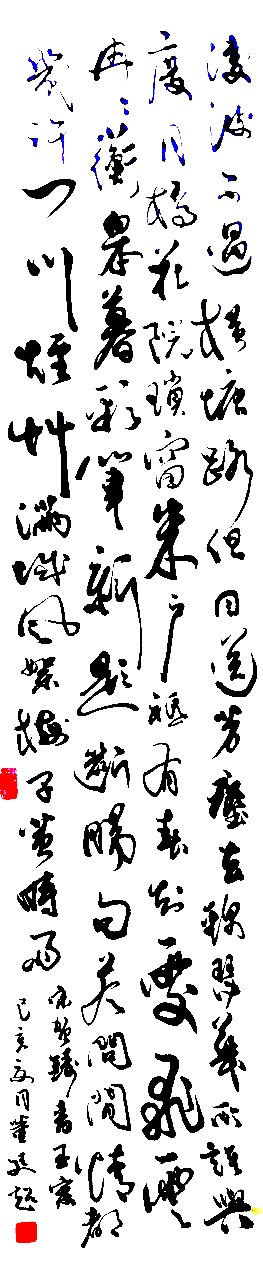 凌波不過橫塘路但目送芳塵去錦瑟華年誰與
度月橋花院瑣窗朱戶祗有春知處飛雲
冉冉蘅皋暮彩筆新題斷腸句若問閒情都
幾許一川煙草滿城風絮梅子黃時雨
宋賀鑄青玉案
己亥夏月董